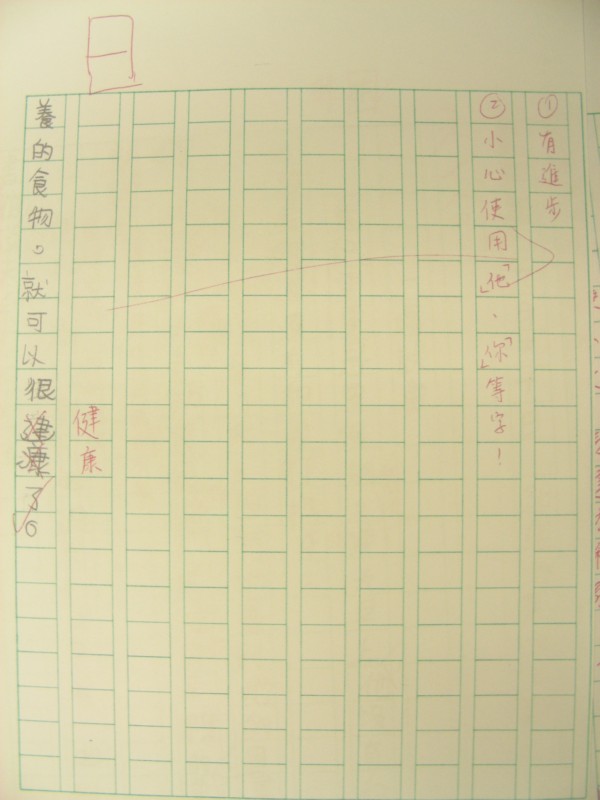 ① 有進步
② 小心使用「他」、「你」等字！
健康
養的食物。就可以很了。
日